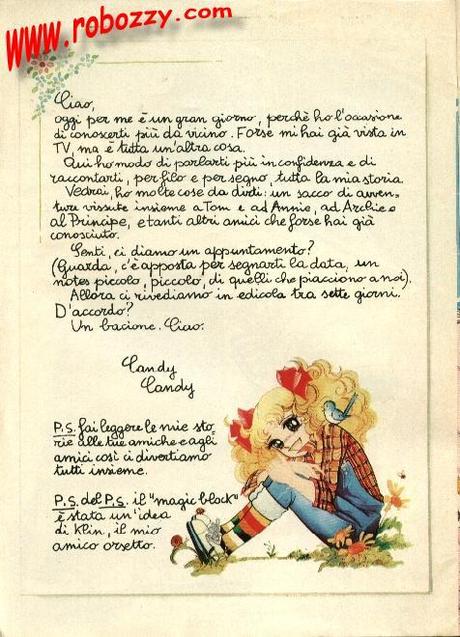 www.robozzy.com
Ciao,
oggi per me è un gran giorno, perchè ho l'occasione
di conoscerti più da vicino. Forse mi hai già vista in
TV, ma è tutta un'altra cosa.
Qui ho modo di parlarti più in confidenza e di
raccontarti, per filo e per segno, tutta la mia storia.
Vedrai, ho molte cose da dirti: un sacco di avven-
ture vissute insieme a Tom e ad Annie, ad Archie e
al Principe, e tanti altri amici che forse hai già
conosciuto.
Senti, ci diamo un appuntamento?
(Guarda, c'è apposta per segnarti la data, un
notes piccolo, piccolo, di quelli che piacciono a noi).
Allora ci rivediamo in edicola tra sette giorni.
D'accordo?
Un bacione. Ciao.
Candy
Candy
P.S. fai leggere le mie sto-
rie alle tue amiche e agli
amici così ci divertiamo
tutti insieme.
P.S. del P.S. il "magic block"
è stata un'idea
di Klin, il mio
amico orsetto.